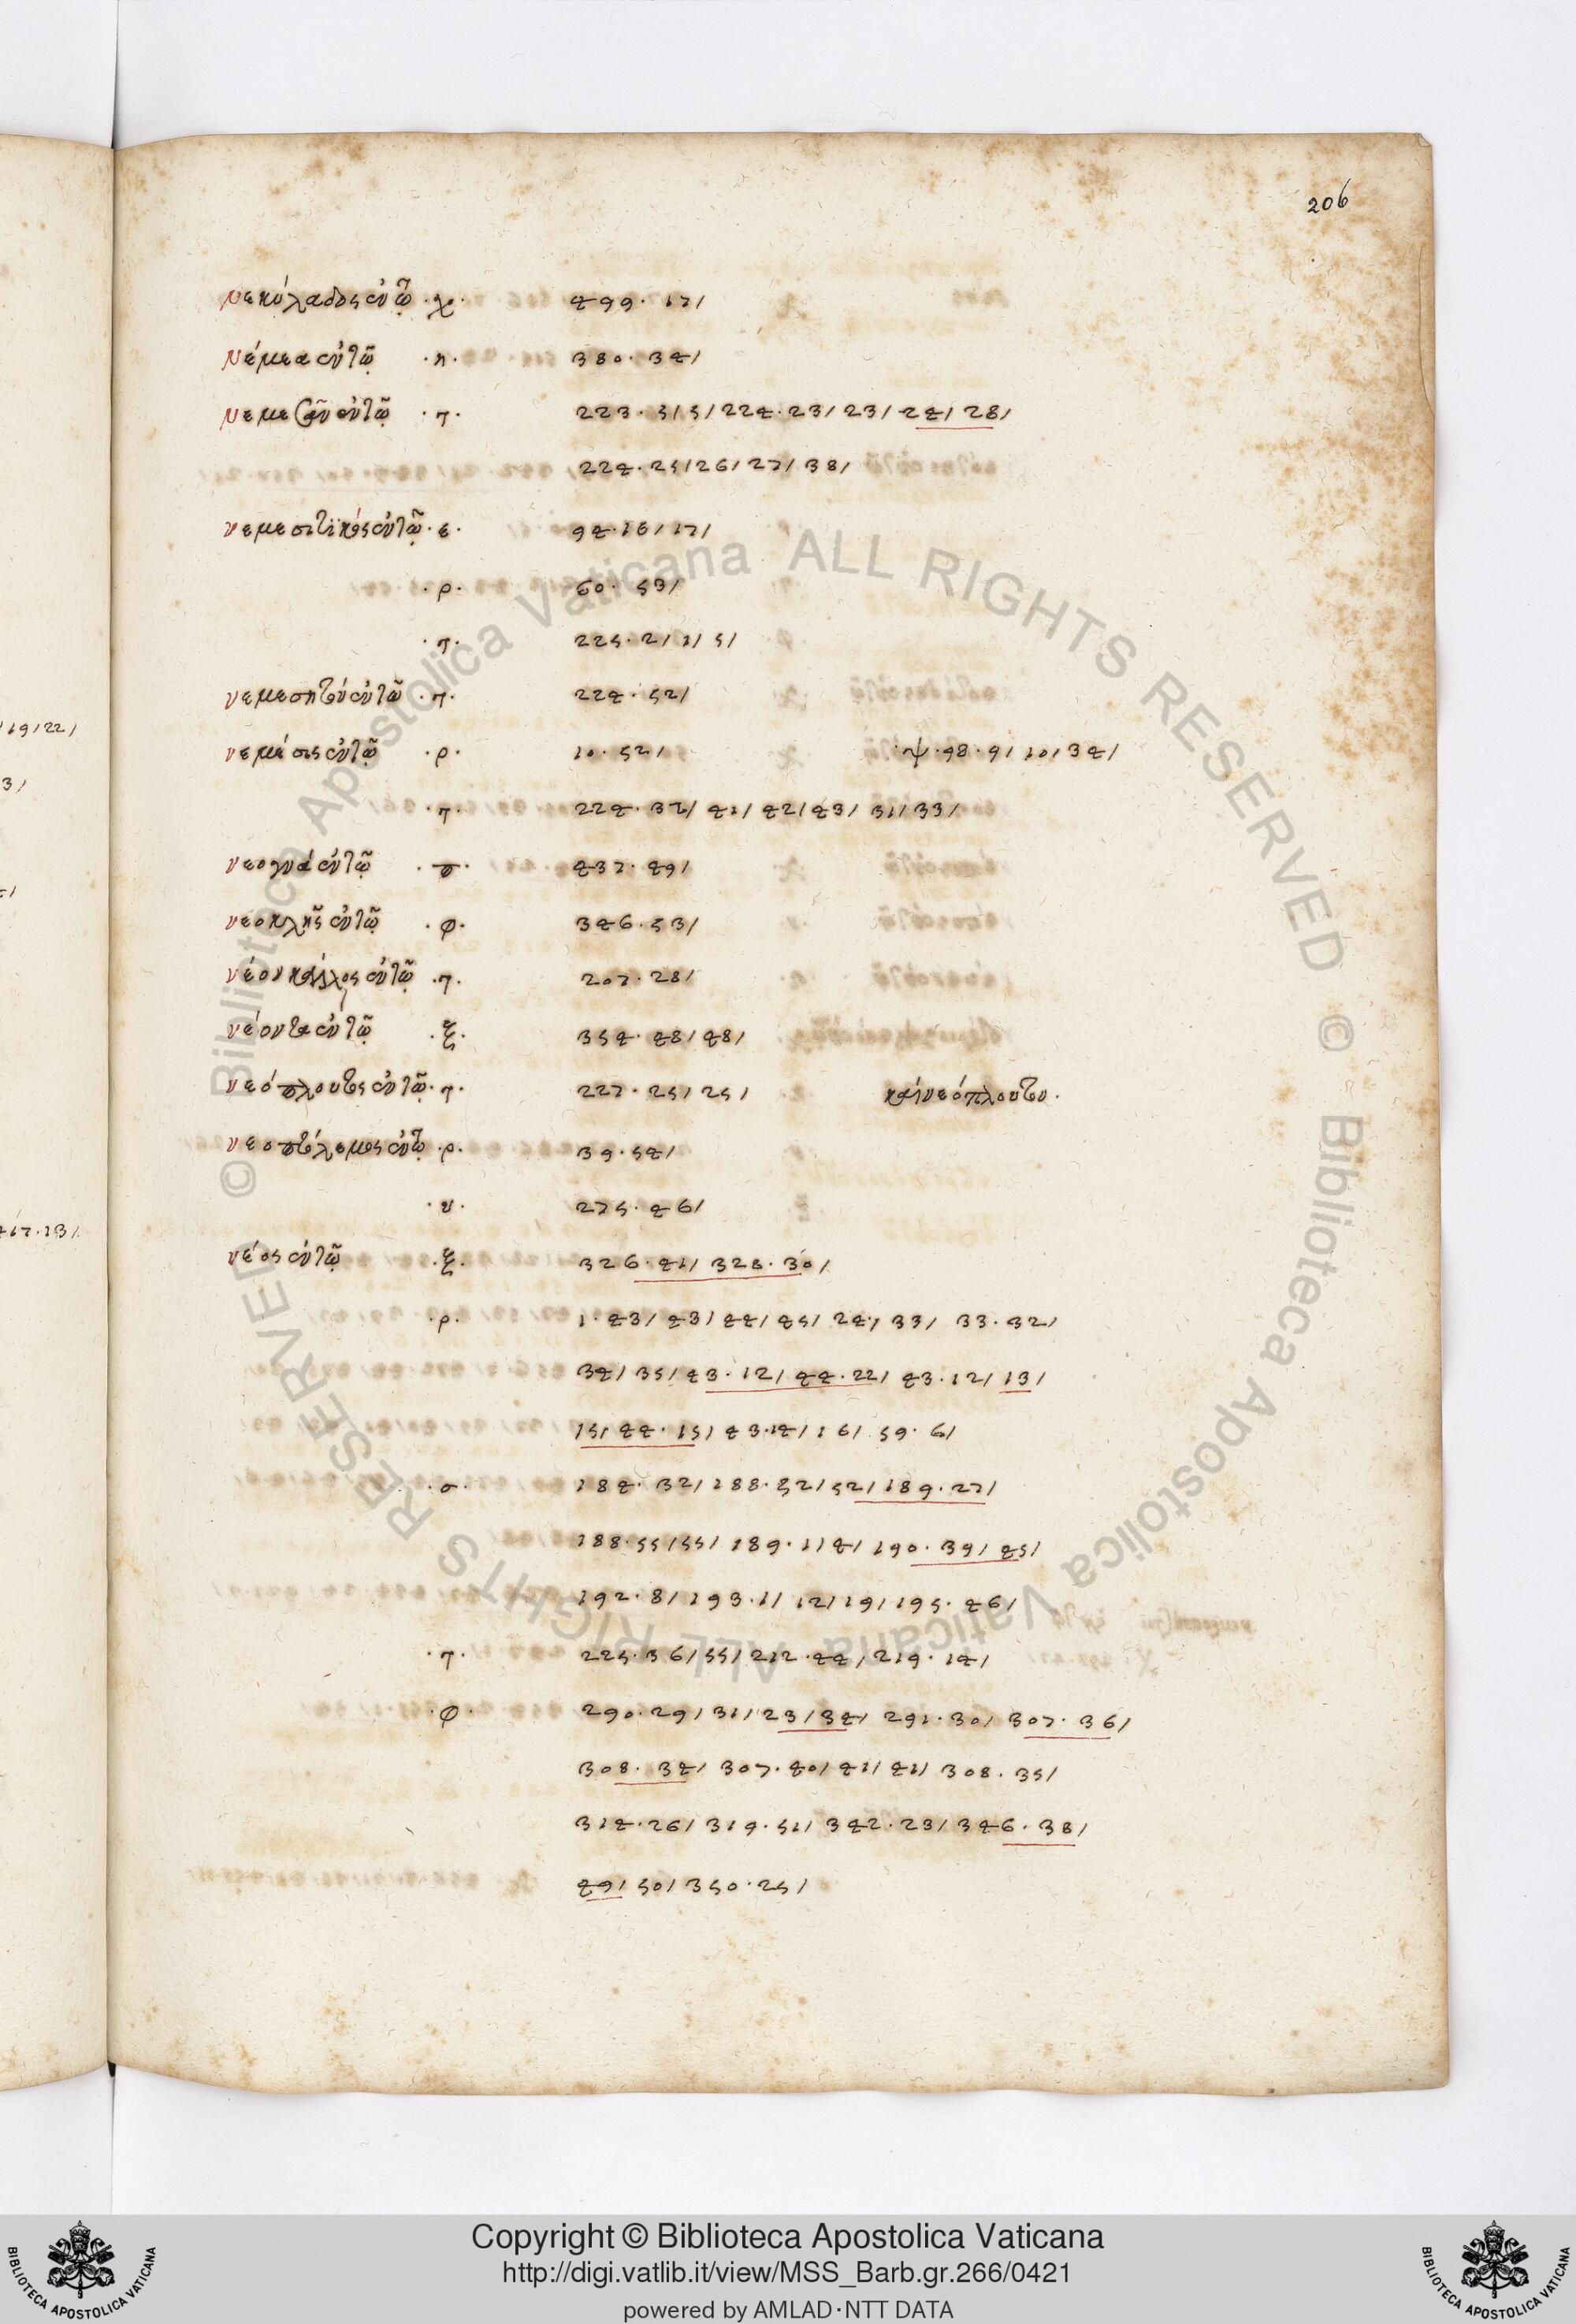 206
νεκύλαδος ἐν τῷ ·χ· 499. 17/
Νέμεα ἐν τῷ ·π· 380. 34/
νεμεσᾶν ἐν τῷ ·τ· 223. 5/5/224.23/23/24/28/
224.25/26/27/38/
νεμεσιτικὸς ἐν τῷ ·ε· 94.16/17/
·ρ· 60. 53/
·τ· 225.2/1/5/
νεμεσητὸν ἐν τῷ ·τ· 224. 52/
νεμέσις ἐν τῷ ·ρ· 10. 52/ ·ψ·98.9/10/34/
·τ· 224. 37/41/42/43/31/33/
νεογνὰ ἐν τῷ ·π· 437. 49/
νεοκλῆς ἐν τῷ ·φ· 346.53/
νέον ἐν τῷ ·τ· 207.28/
νέοντα ἐν τῷ ·ξ· 354.48/48/
νεόπλουτος ἐν τῷ ·τ· 227.25/25/ καὶ νεόπλουτον.
νεοπτόλεμος ἐν τῷ ·ρ· 39.54/
·υ· 275.46/
νέος ἐν τῷ ·ξ· 326.41/328.30/
·ρ· 1.43/43/44/45/24/33/ 33.32/
34/35/43.12/44.22/43.12/13/
15/44.15/43.14/16/59.6/
·σ· 184.32/188.52/52/189.27/
188.55/55/189.1/4/190.39/45/
192.8/193.1/12/19/195.46/
·τ· 225.36/55/212.44/219.14/
·φ· 290.29/31/23/34/291.30/307.36/
308.34/307.40/41/41/308.35/
314.26/319.51/342.23/346.38/
49/50/350.25/
19/22/
3/
67.13/
© Biblioteca Apostolica Vaticana ALL RIGHTS RESERVED © Biblioteca Apostolica Vaticana ALL RIGHTS RESERVED
Copyright © Biblioteca Apostolica Vaticana
http://digi.vatlib.it/view/MSS_Barb.gr.266/0421
powered by AMLAD·NTT DATA
BIBLIOTECA APOSTOLICA VATICANA
BIBLIOTECA APOSTOLICA VATICANA